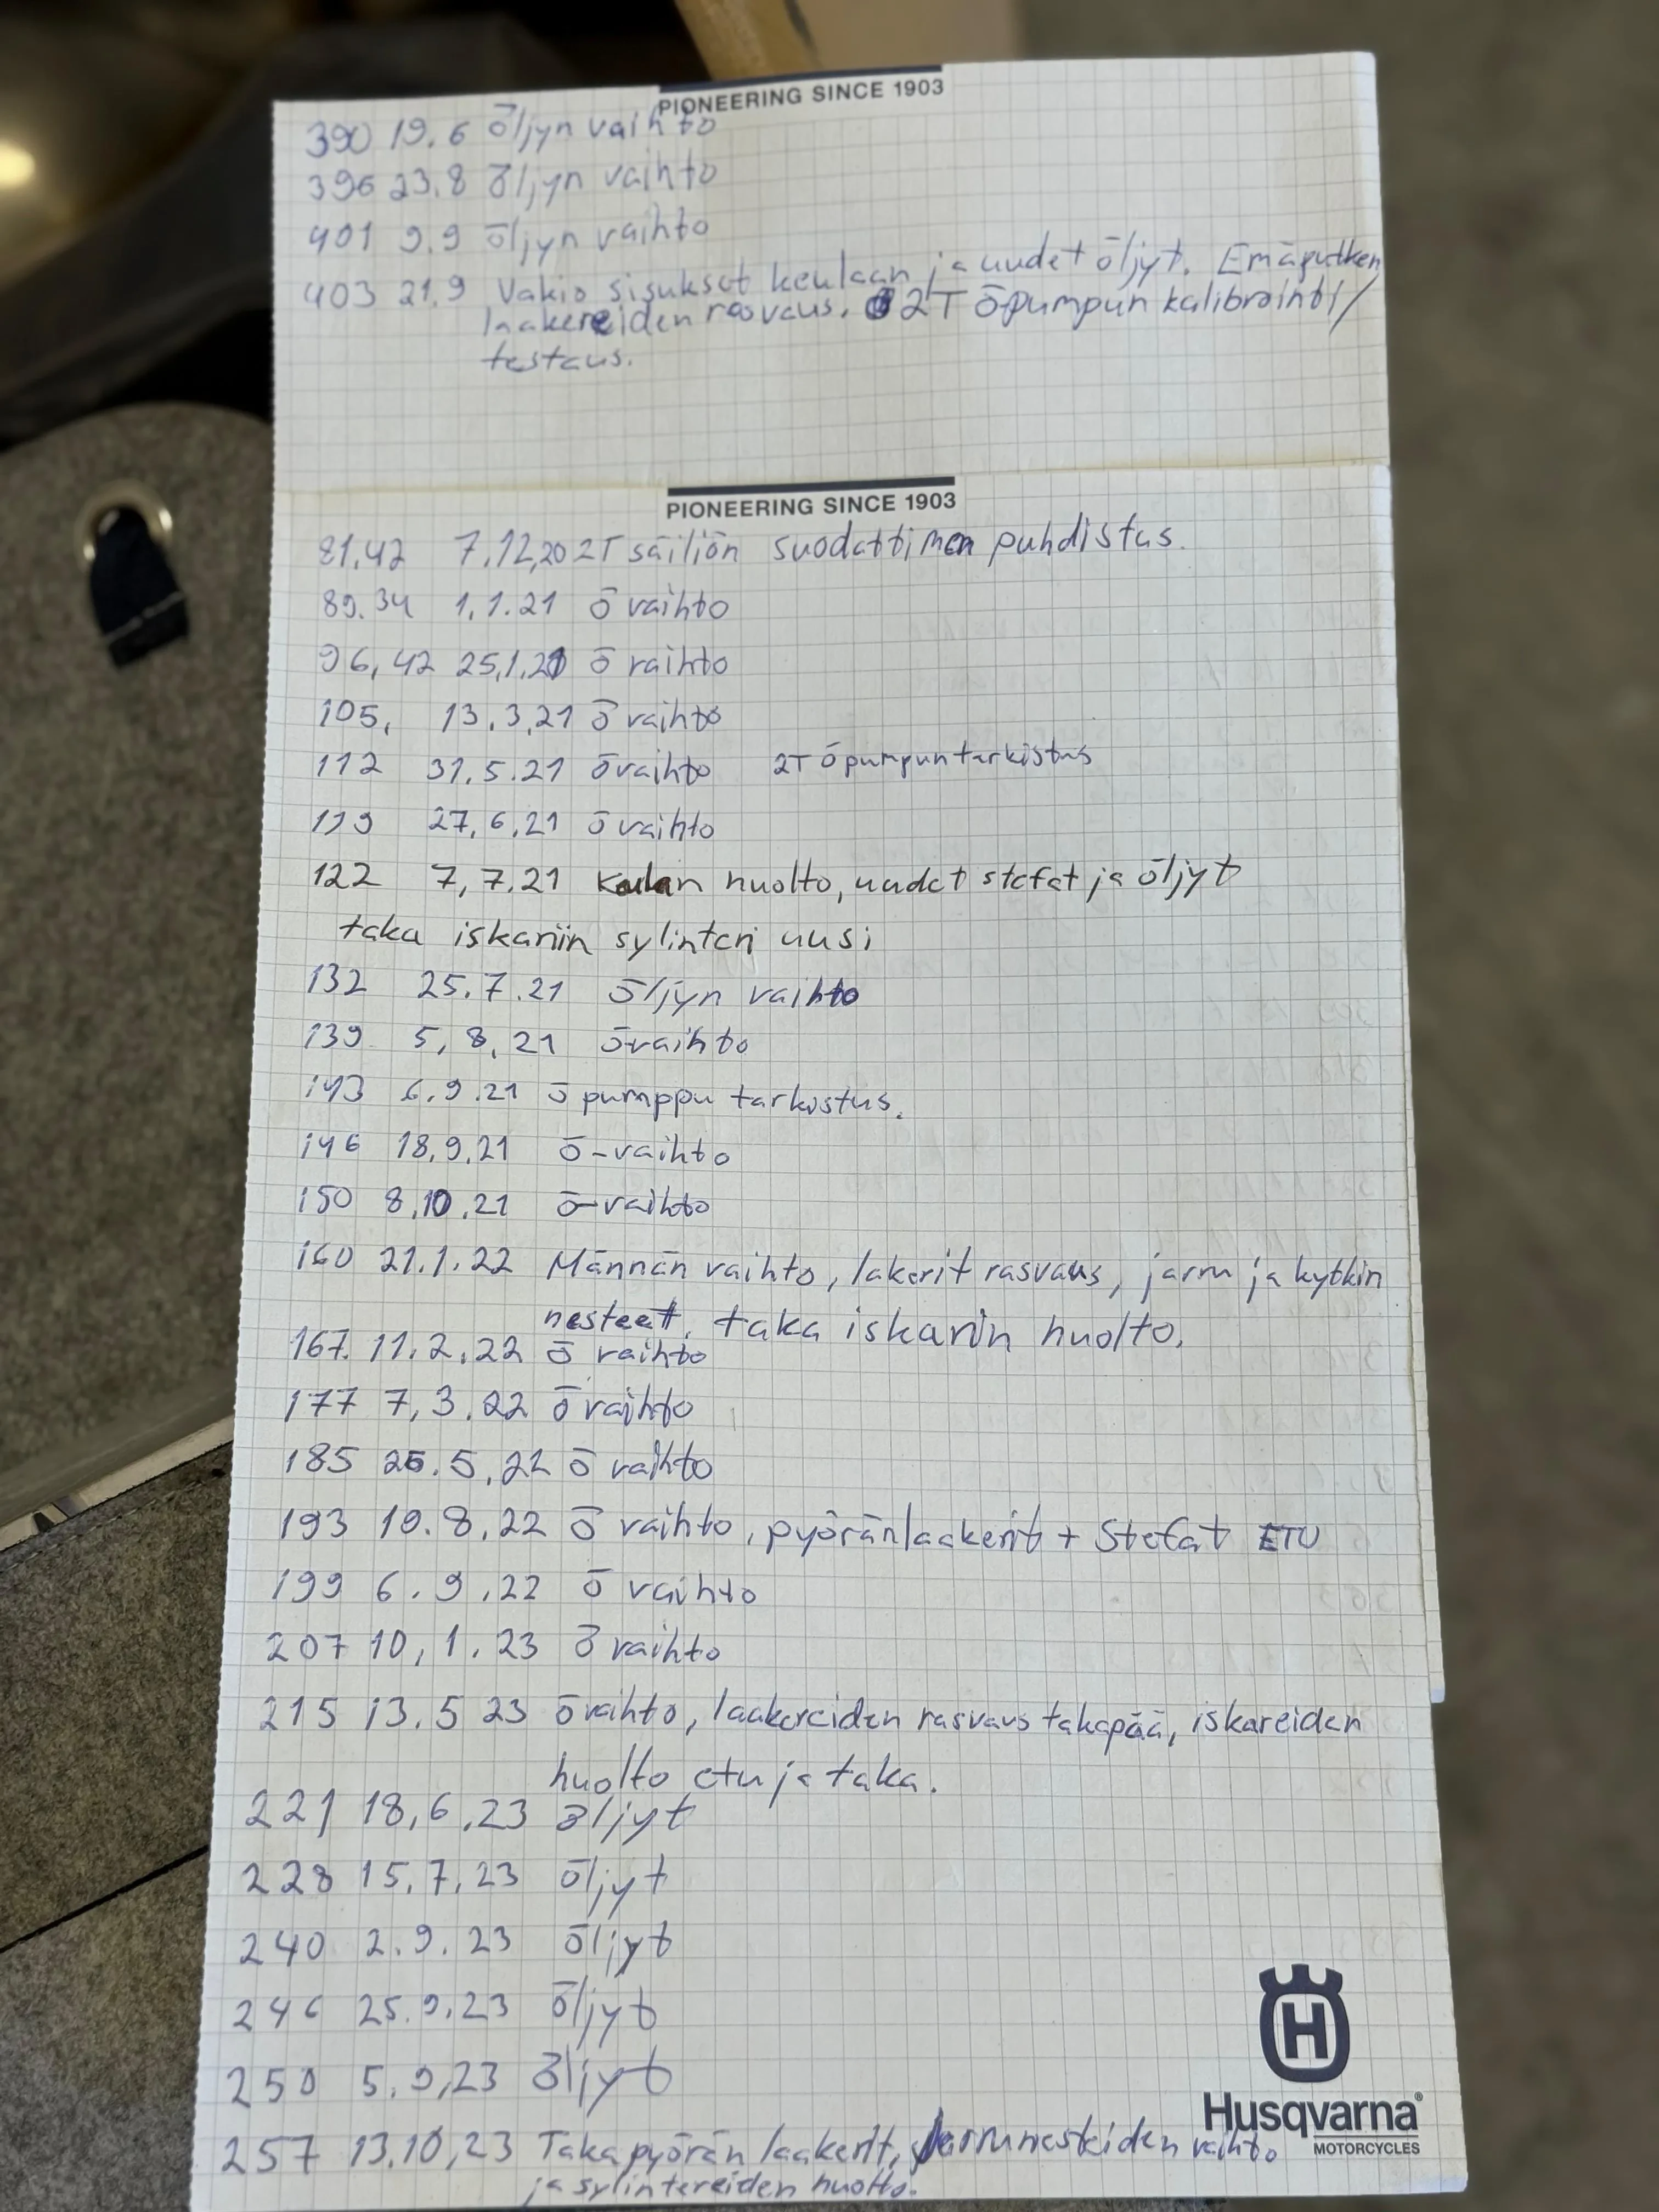 PIONEERING SINCE 1903
390 19.6 öljyn vaihto
396 23.8 öljyn vaihto
401 9.9 öljyn vaihto
403 21.9 Vakio sisukset keulaan ja uudet öljyt. Emäputken
laakereiden rasvaus. 2T ö pumpun kalibrointi/
testaus.
PIONEERING SINCE 1903
81,42 7,12,20 2T säiliön suodattimen puhdistus.
89.34 1,1.21 ö vaihto
96,42 25,1,21 ö vaihto
105, 13.3,21 ö vaihto
112 31.5.21 ö vaihto 2T ö pumpun tarkistus
119 27,6,21 ö vaihto
122 7,7.21 Keulan huolto, uudet stefat ja öljyt
taka iskariin sylinteri uusi
132 25.7.21 öljyn vaihto
139 5,8,21 ö vaihto
143 6.9.21 ö pumppu tarkistus.
146 18,9,21 ö-vaihto
150 8,10,21 ö-vaihto
160 21.1.22 Männän vaihto, lakerit rasvaus, jarru ja kytkin
nesteet, taka iskarin huolto.
167. 11.2.22 ö vaihto
177 7,3.22 ö vaihto
185 26.5,22 ö vaihto
193 19.8,22 ö vaihto, pyöränlaakerit + Stefat ETU
199 6.9,22 ö vaihto
207 10,1.23 ö vaihto
215 13.5 23 ö vaihto, laakereiden rasvaus takapää, iskareiden
huolto etu ja taka.
221 18,6,23 öljyt
228 15,7,23 öljyt
240 2.9.23 öljyt
246 25.9.23 öljyt
250 5.9,23 öljyt
257 13,10,23 Takapyörän laakerit, Jarrunesteiden vaihto
ja sylintereiden huolto.
Husqvarna®
MOTORCYCLES